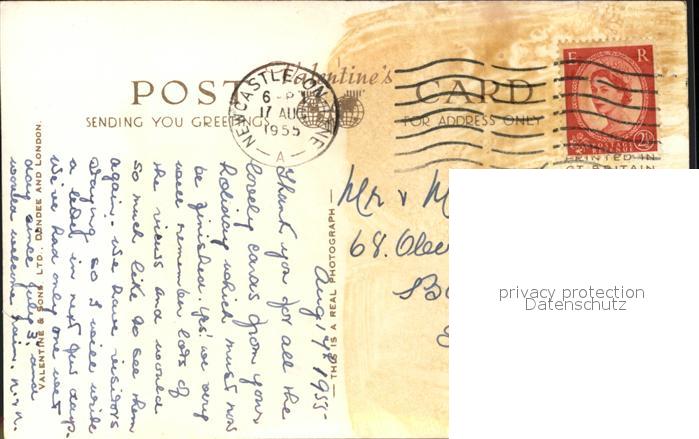 Valentine's
POST CARD
SENDING YOU GREETINGS
FOR ADDRESS ONLY
NEWCASTLE ON TYNE
6 - PM
17 AUG
1955
A
E R
2½
POSTAGE
REVENUE
PRINTED IN
GT BRITAIN
Mr & M
68. Olive
privacy protection
Datenschutz
THIS IS A REAL PHOTOGRAPH
VALENTINE & SONS. LTD. DUNDEE AND LONDON.
Aug 17th 1955.
Thank you for all the
lovely cards from your
holiday which must now
be finished. Yes! we very
well remember lots of
the views and would
so much like to see them
again. We have visitors
staying so I will write
a letter in next few days.
We've had only one wet
day since July 3 and
would welcome rain.